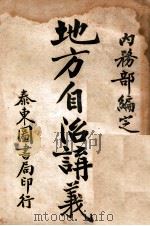 内務部編定
地方自治講義
泰東圖書局印行
www.modtgc.com